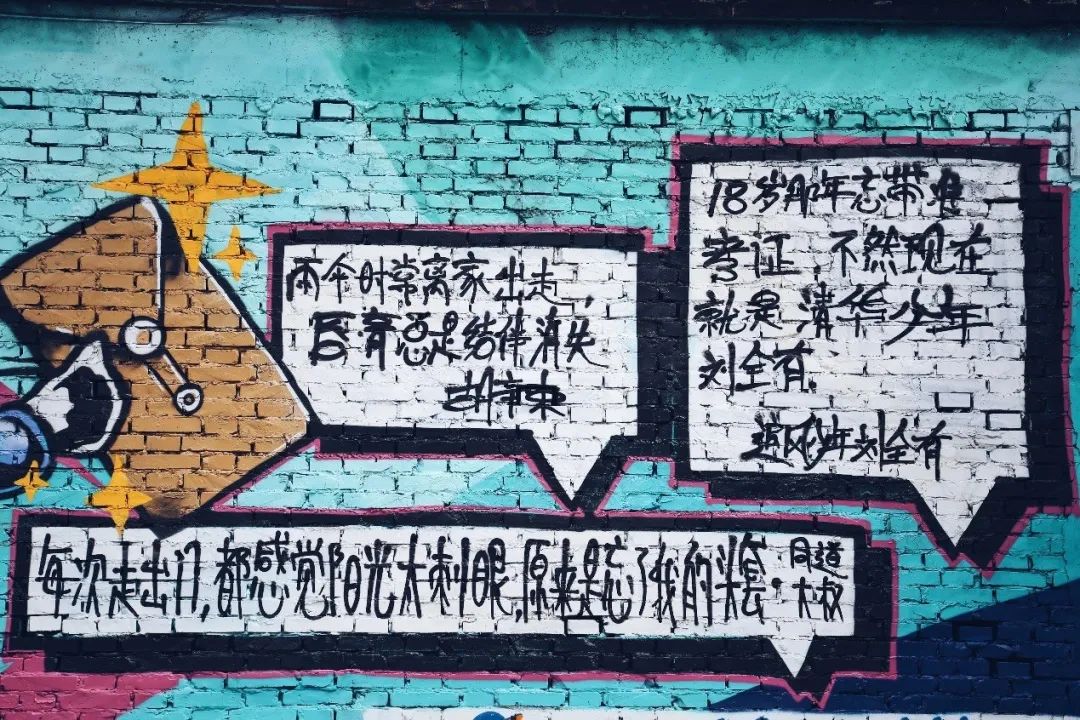 雨伞时常离家出走,
总是结伴消失
胡辛束
18岁那年忘带准
考证,不然现在
就是清华少年
刘全有.
追风少年刘全有
每次走出门,都感觉阳光太刺眼,原来是忘了我的头套.
同道
大叔